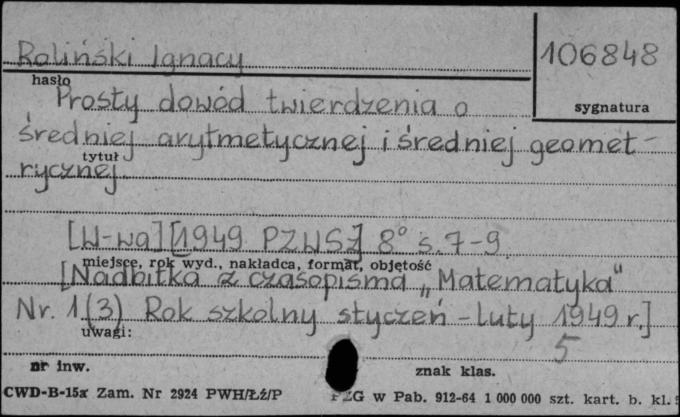 Roliński Ignacy
106848
hasło
Prosty dowód twierdzenia o
sygnatura
średniej arytmetycznej i średniej geomet-
tytuł
rycznej.
[W-wa] [1949 PZWSz] 8° s. 7-9
miejsce, rok wyd., nakładca, format, objętość
[Nadbitka z czasopisma „Matematyka"
Nr. 1 (3) Rok szkolny styczeń - luty 1949 r.]
uwagi:
5
nr inw.
znak klas.
CWD-B-15x Zam. Nr 2924 PWH/Łź/P
w Pab. 912-64 1 000 000 szt. kart. b. kl.